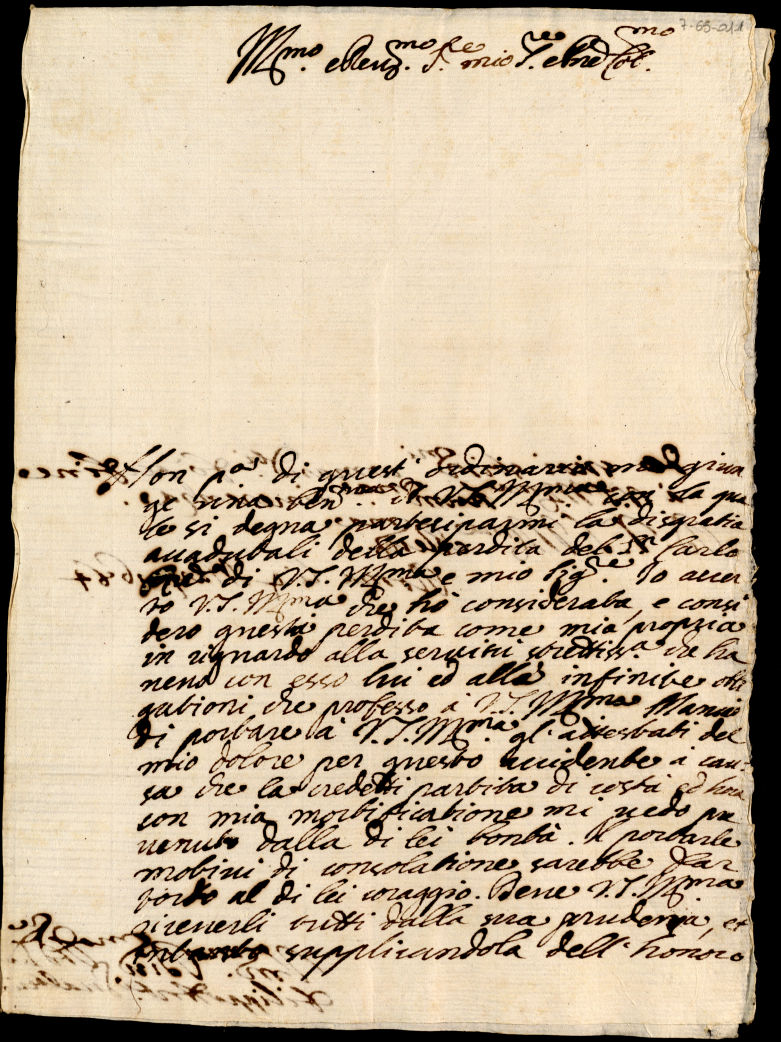 7-65-011
Ill.mo e Reu.mo S.re mio S.re e P.ne Col.mo
Non p.a di quest' ordinario mi giun
ge una ben.ma di V.S. Ill.ma con la qua
le si degna partesiparmi la disgratia
accadutali della perdita del S.r Carlo
di V.S. Ill.ma e mio Sig.re Io acer
to V.S. Ill.ma che hò considerata, e consi
dero questa perdita come mia propria
in riguardo alla seruitù strettiss.a che ha
neuo con esso lui ed alla infinite obli
gationi che professo à V.S. Ill.ma Mancai
di portare à V.S. Ill.ma gl' attestati del
mio dolore per questo accidente à cau
sa che la credetti partita di costà ed hora
con mia mortificatione mi uedo pre
uenuto dalla di lei bontà. Il portarle
motiui di consolatione sarebbe far
torto al di lei coraggio. Deue V.S. Ill.ma
riceuerli tutti dalla sua prudenza, et
intanto supplicandola dell' honore